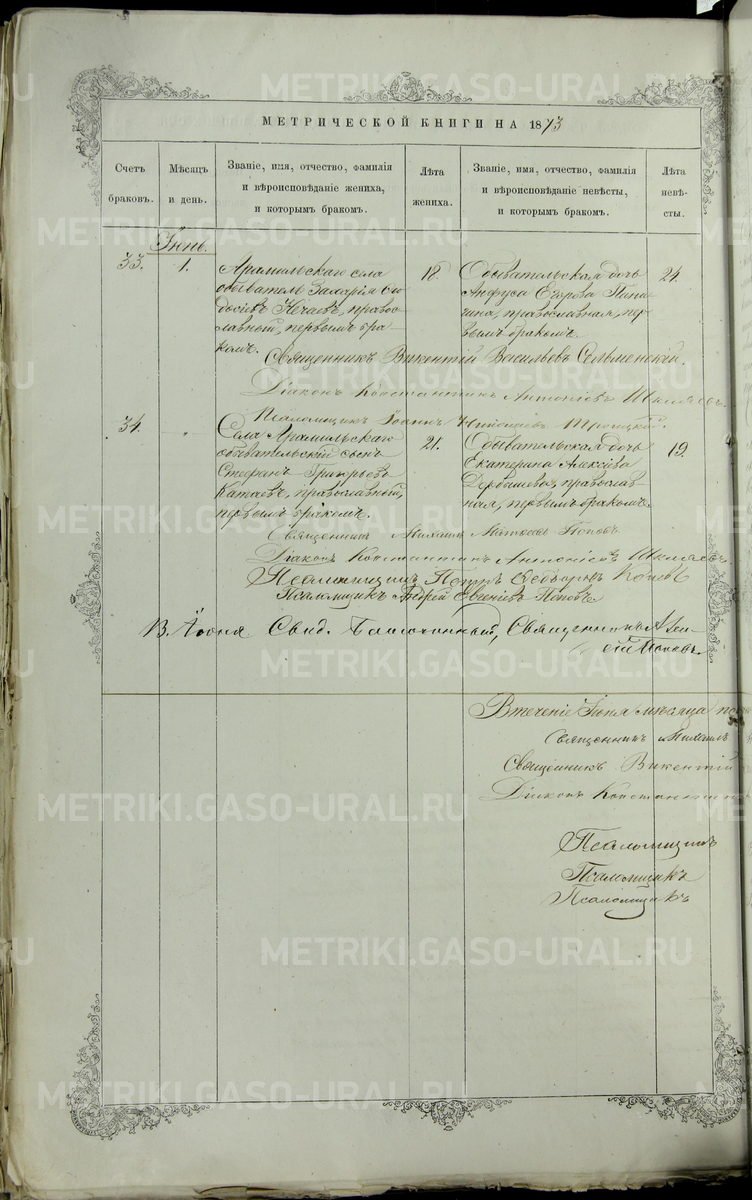 МЕТРИЧЕСКОЙ КНИГИ НА 1873
Счетъ браковъ.
Мѣсяцъ и день.
Званіе, имя, отчество, фамилія
и вѣроисповѣданіе жениха,
и которымъ бракомъ.
Лѣта жениха.
Званіе, имя, отчество, фамилія
и вѣроисповѣданіе невѣсты,
и которымъ бракомъ.
Лѣта невѣ-
сты.
Іюнь.
33.
1.
Арамильскаго села
обыватель Захарія Ѳе-
досіевъ Нечаевъ, право-
славный, первымъ бра-
комъ.
18.
Обывательская дочь
Анфуса Егорова
православная, пер-
вымъ бракомъ.
24.
Священникъ Викентій Васильевъ Сельменскій.
Діаконъ Константинъ Антоніевъ Шкляевъ.
Псаломщикъ Іоаннъ Троицкій.
34.
"
Села Арамильскаго
обывательскій сынъ
Стефанъ Григорьевъ
Катаевъ, православный,
первымъ бракомъ.
21.
Обывательская дочь
Екатерина Алексіева
Дербышева, православ-
ная, первымъ бракомъ.
19.
Священникъ Михаилъ Матѳіевъ Поповъ
Діаконъ Константинъ Антоніевъ Шкляевъ.
Псаломщикъ Петръ Ѳедоровъ
Псаломщикъ Андрей Евгеніевъ Поповъ
13. Іюня Свид. Благочинный, Священникъ
Поповъ.
Втеченіе Іюня мѣсяца
Священникъ Михаилъ
Священникъ Викентій
Діаконъ Константинъ
Псаломщикъ
Псаломщикъ
Псаломщикъ
METRIKI.GASO-URAL.RU